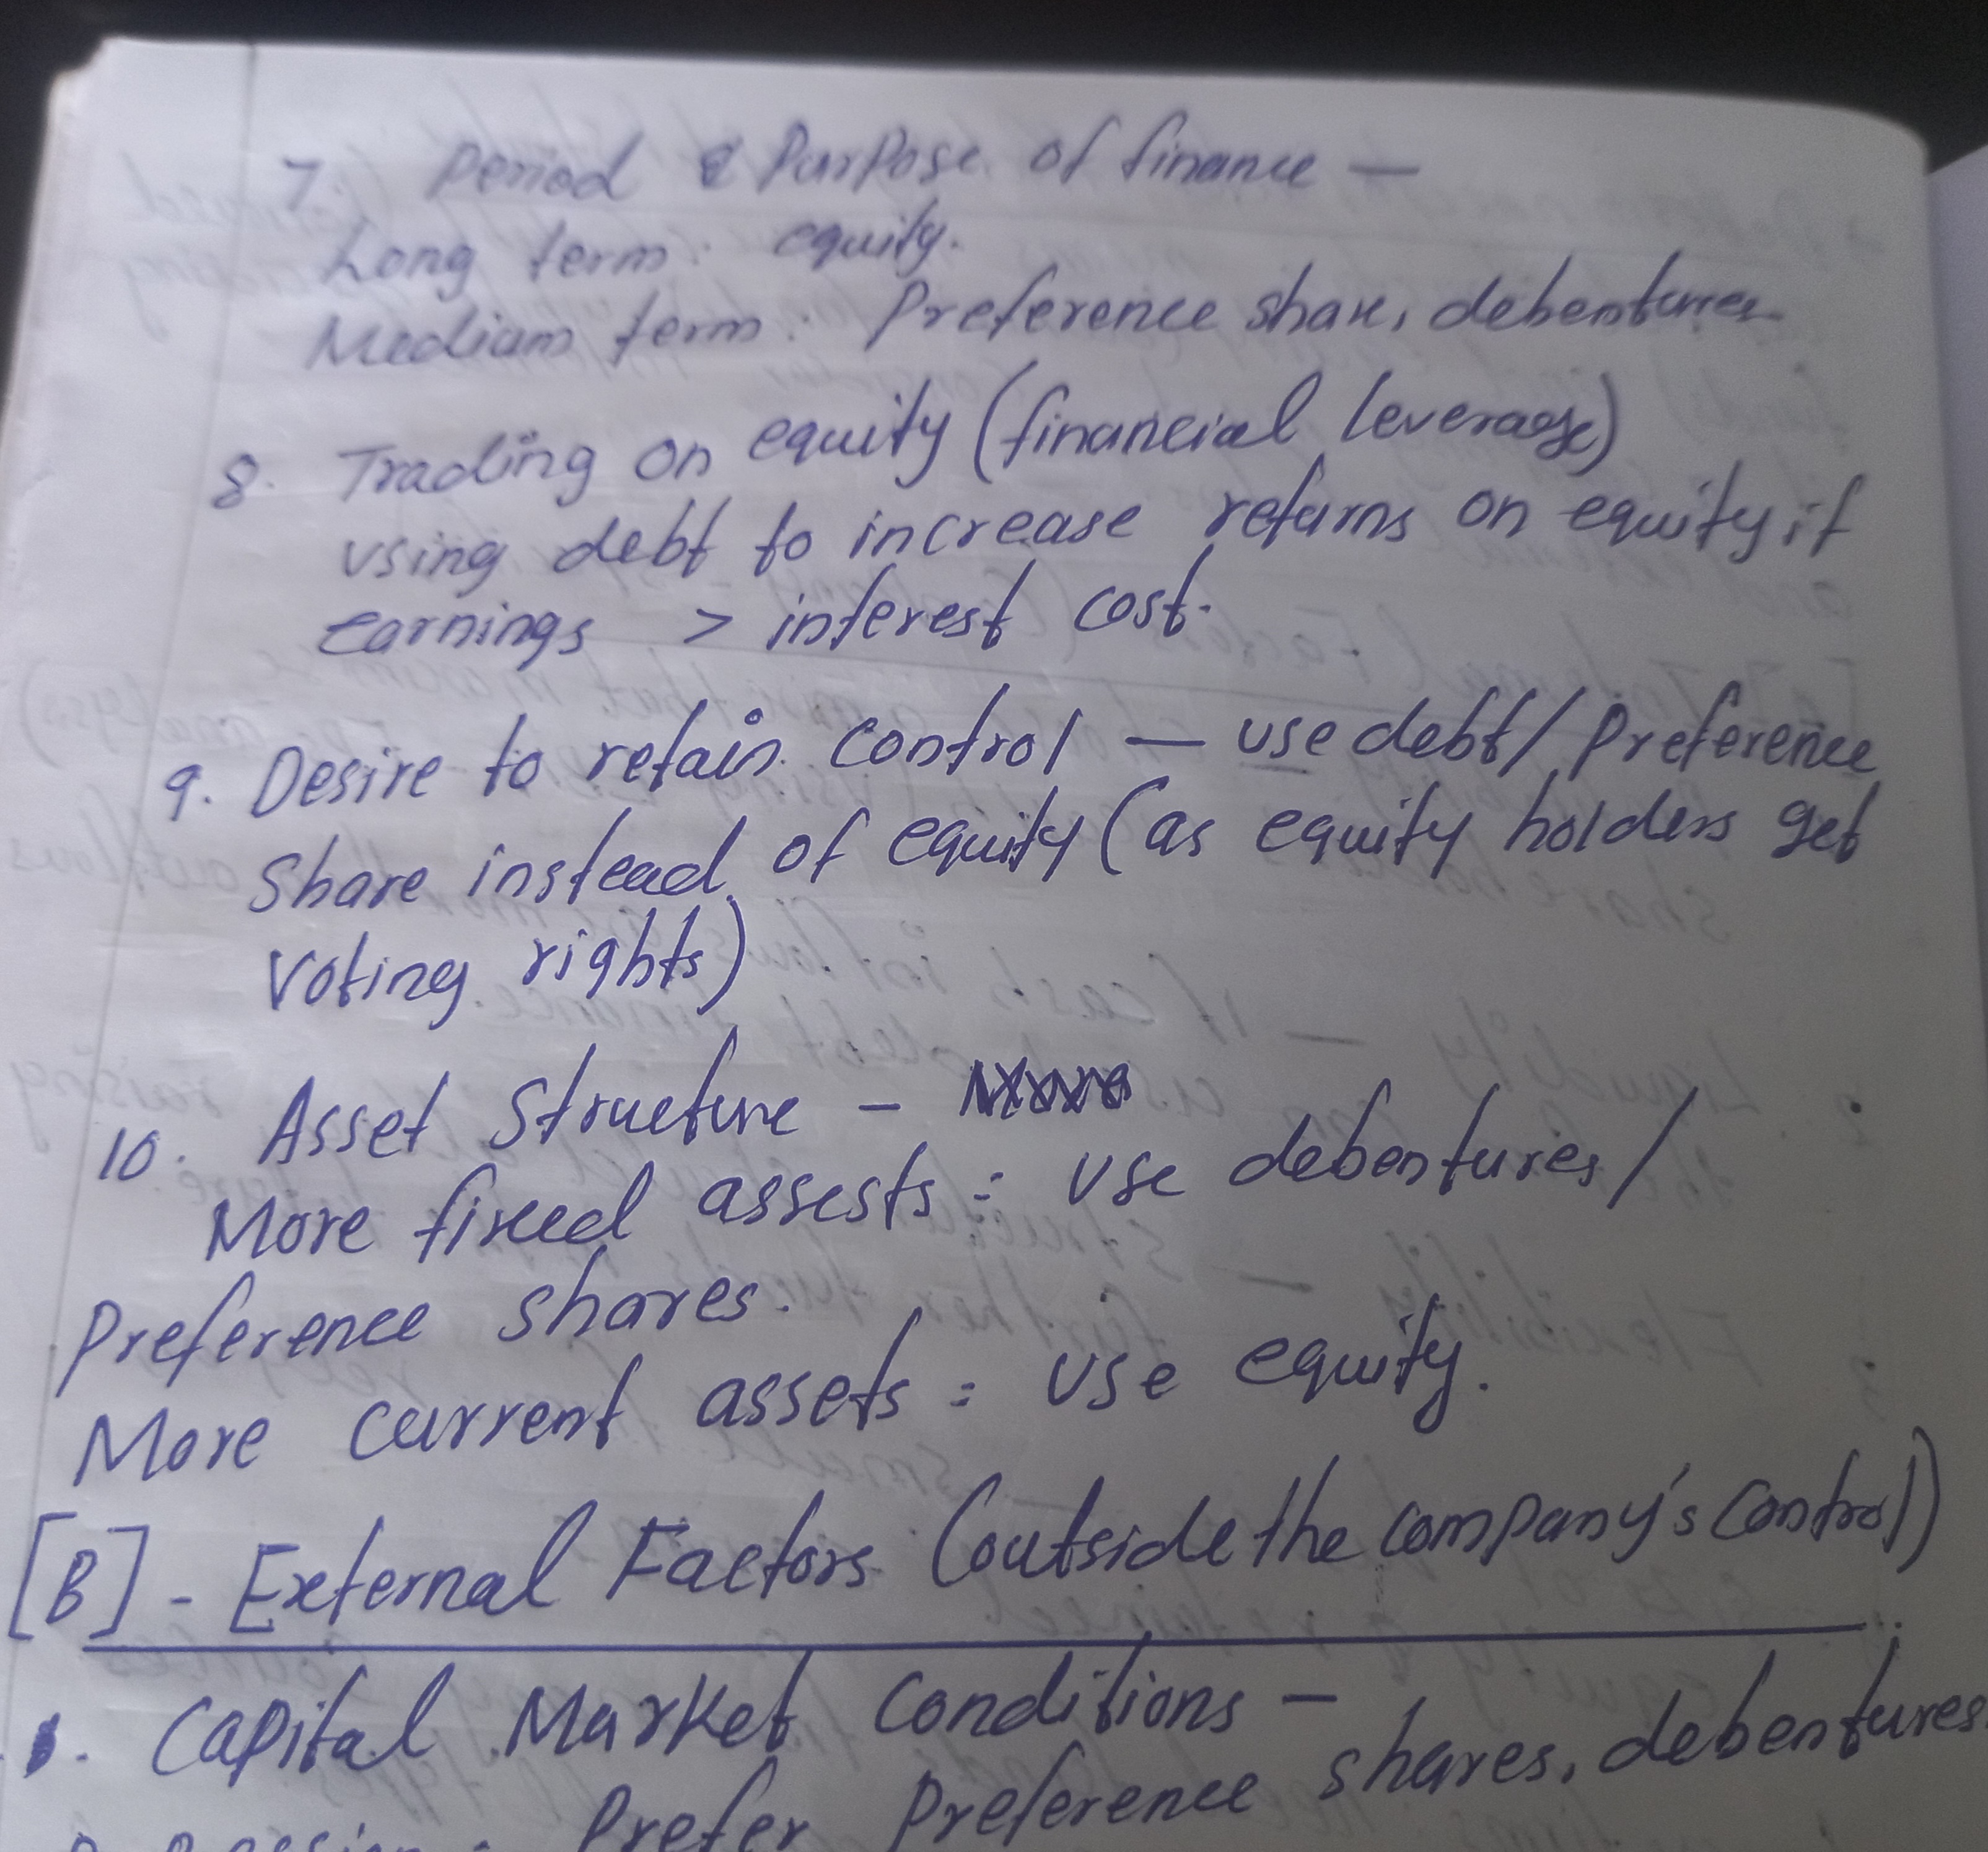 7. Period & Purpose of finance —
Long term: equity.
Medium term: Preference share, debentures
8. Trading on equity (financial leverage)
using debt to increase returns on equity if
earnings > interest cost.
9. Desire to retain control — use debt/Preference
Share instead of equity (as equity holders get
Voting rights)
10. Asset Structure -
More fixed assests : use debentures/
Preference shares.
More current assets : use equity.
[B] - External Factors (outside the company's control)
Capital Market Conditions —
Prefer Preference shares, debentures